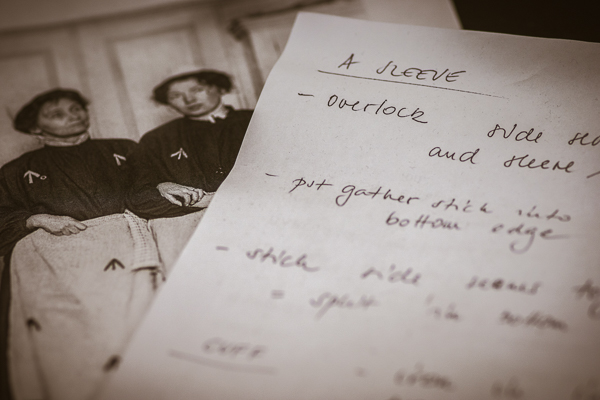 A SLEEVE
- overlock side
and sleeve
- put gather stich into
bottom edge
- stich side seams
= split in bottom
CUFF